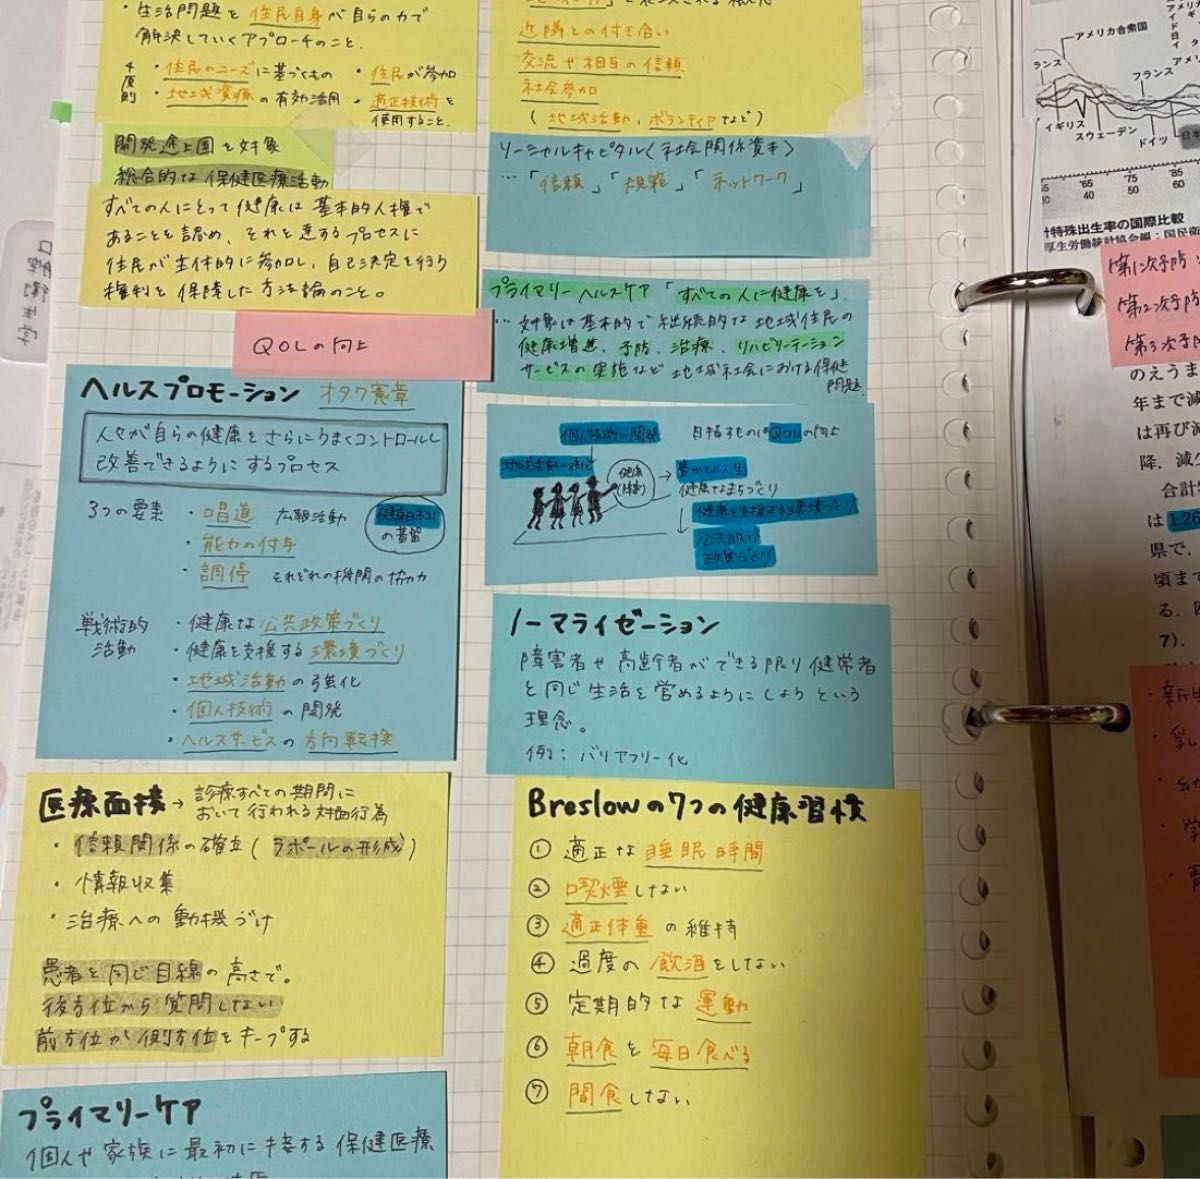 ・生活問題を住民自身が自らの力で
解決していくアプローチのこと。
4原則
・住民のニーズに基づくもの ・住民が参加
・地域資源の有効活用 ・適正技術を
使用すること。
開発途上国を対象
総合的な保健医療活動
すべての人にとって健康は基本的人権で
あることを認め、それを達するプロセスに
住民が主体的に参加し、自己決定を行う
権利を保障した方法論のこと。
QOLの向上
ヘルスプロモーション オタワ憲章
人々が自らの健康をさらにうまくコントロールし
改善できるようにするプロセス
3つの要素 ・唱道 広報活動
・能力の付与
・調停 それぞれの機関の協力
健康日本21
の基盤
戦術的
活動
・健康な公共政策づくり
・健康を支援する環境づくり
・地域活動の強化
・個人技術の開発
・ヘルスサービスの方向転換
医療面接→診療すべての期間に
おいて行われる対面行為
・信頼関係の確立(ラポールの形成)
・情報収集
・治療への動機づけ
患者と同じ目線の高さで。
後方位から質問しない
前方位か側方位をキープする
プライマリーケア
個人や家族に最初に接する保健医療
近隣との付き合い
交流や相互の信頼
社会参加
(地域活動、ボランティアなど)
ソーシャルキャピタル(社会関係資本)
…「信頼」「規範」「ネットワーク」
プライマリーヘルスケア「すべての人に健康を」
…対象は基本的で継続的な地域住民の
健康増進、予防、治療、リハビリテーション
サービスの実施など地域社会における保健
問題
個人技術の開発 目指すものはQOLの向上
地域活動の強化
健康
→豊かな人生
健康なまちづくり
健康を支援する環境づくり
公共的な
政策づくり
ノーマライゼーション
障害者や高齢者ができる限り健常者
と同じ生活を営めるようにしようという
理念。
例：バリアフリー化
Breslowの7つの健康習慣
① 適正な睡眠時間
② 喫煙しない
③ 適正体重の維持
④ 過度の飲酒をしない
⑤ 定期的な運動
⑥ 朝食を毎日食べる
⑦ 間食しない
アメリカ合衆国
ランス
フランス
イギリス
スウェーデン
ドイツ
日本
'65 '75 '85
40 50 60
計特殊出生率の国際比較
厚生労働統計協会編：国民衛
第1次予防
第2次予防
第3次予防
のえうま
年まで減
は再び減
降，減少
合計特
は1.26
県で，
頃まで
る．
7)．